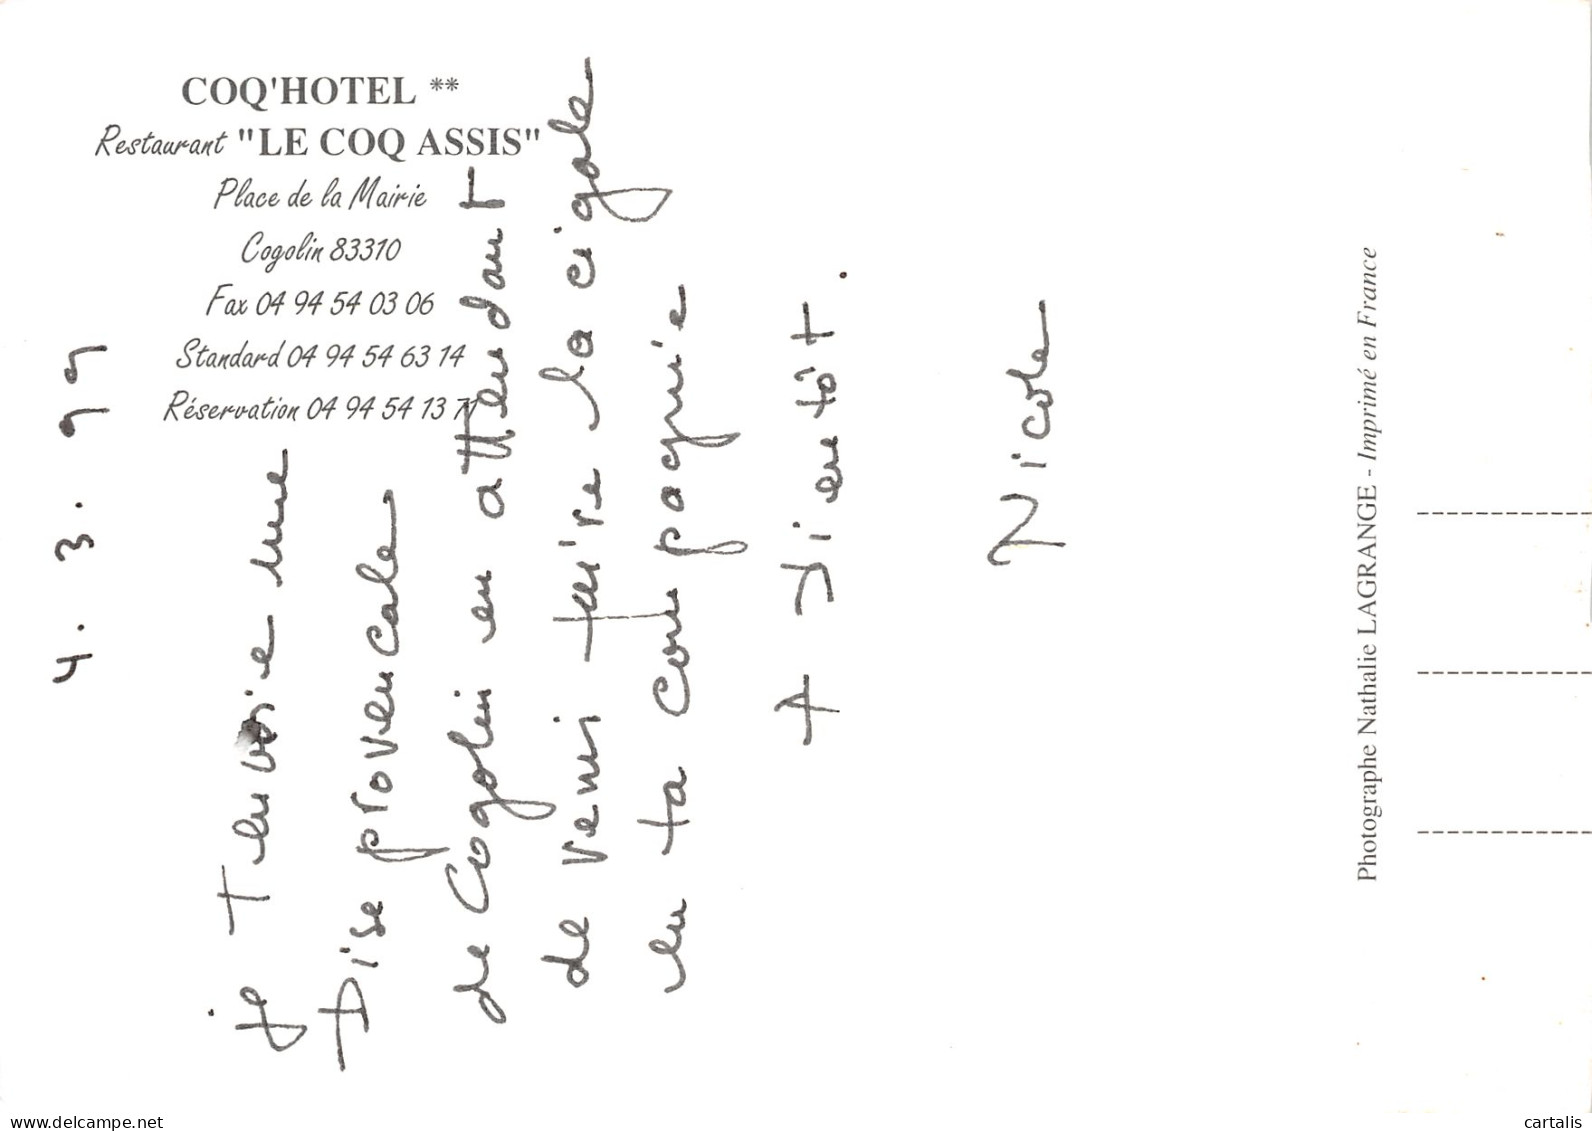 COQ'HOTEL **
Restaurant "LE COQ ASSIS"
Place de la Mairie
Cogolin 83310
Fax 04 94 54 03 06
Standard 04 94 54 63 14
Réservation 04 94 54 13 71
4. 3. 99
je t'envoie une
Bise provencale
de Cogolin en attendant
de venir faire la cigale
en ta compagnie
A Bientôt.
Nicole
Photographe Nathalie LAGRANGE - Imprimé en France
www.delcampe.net
cartalis